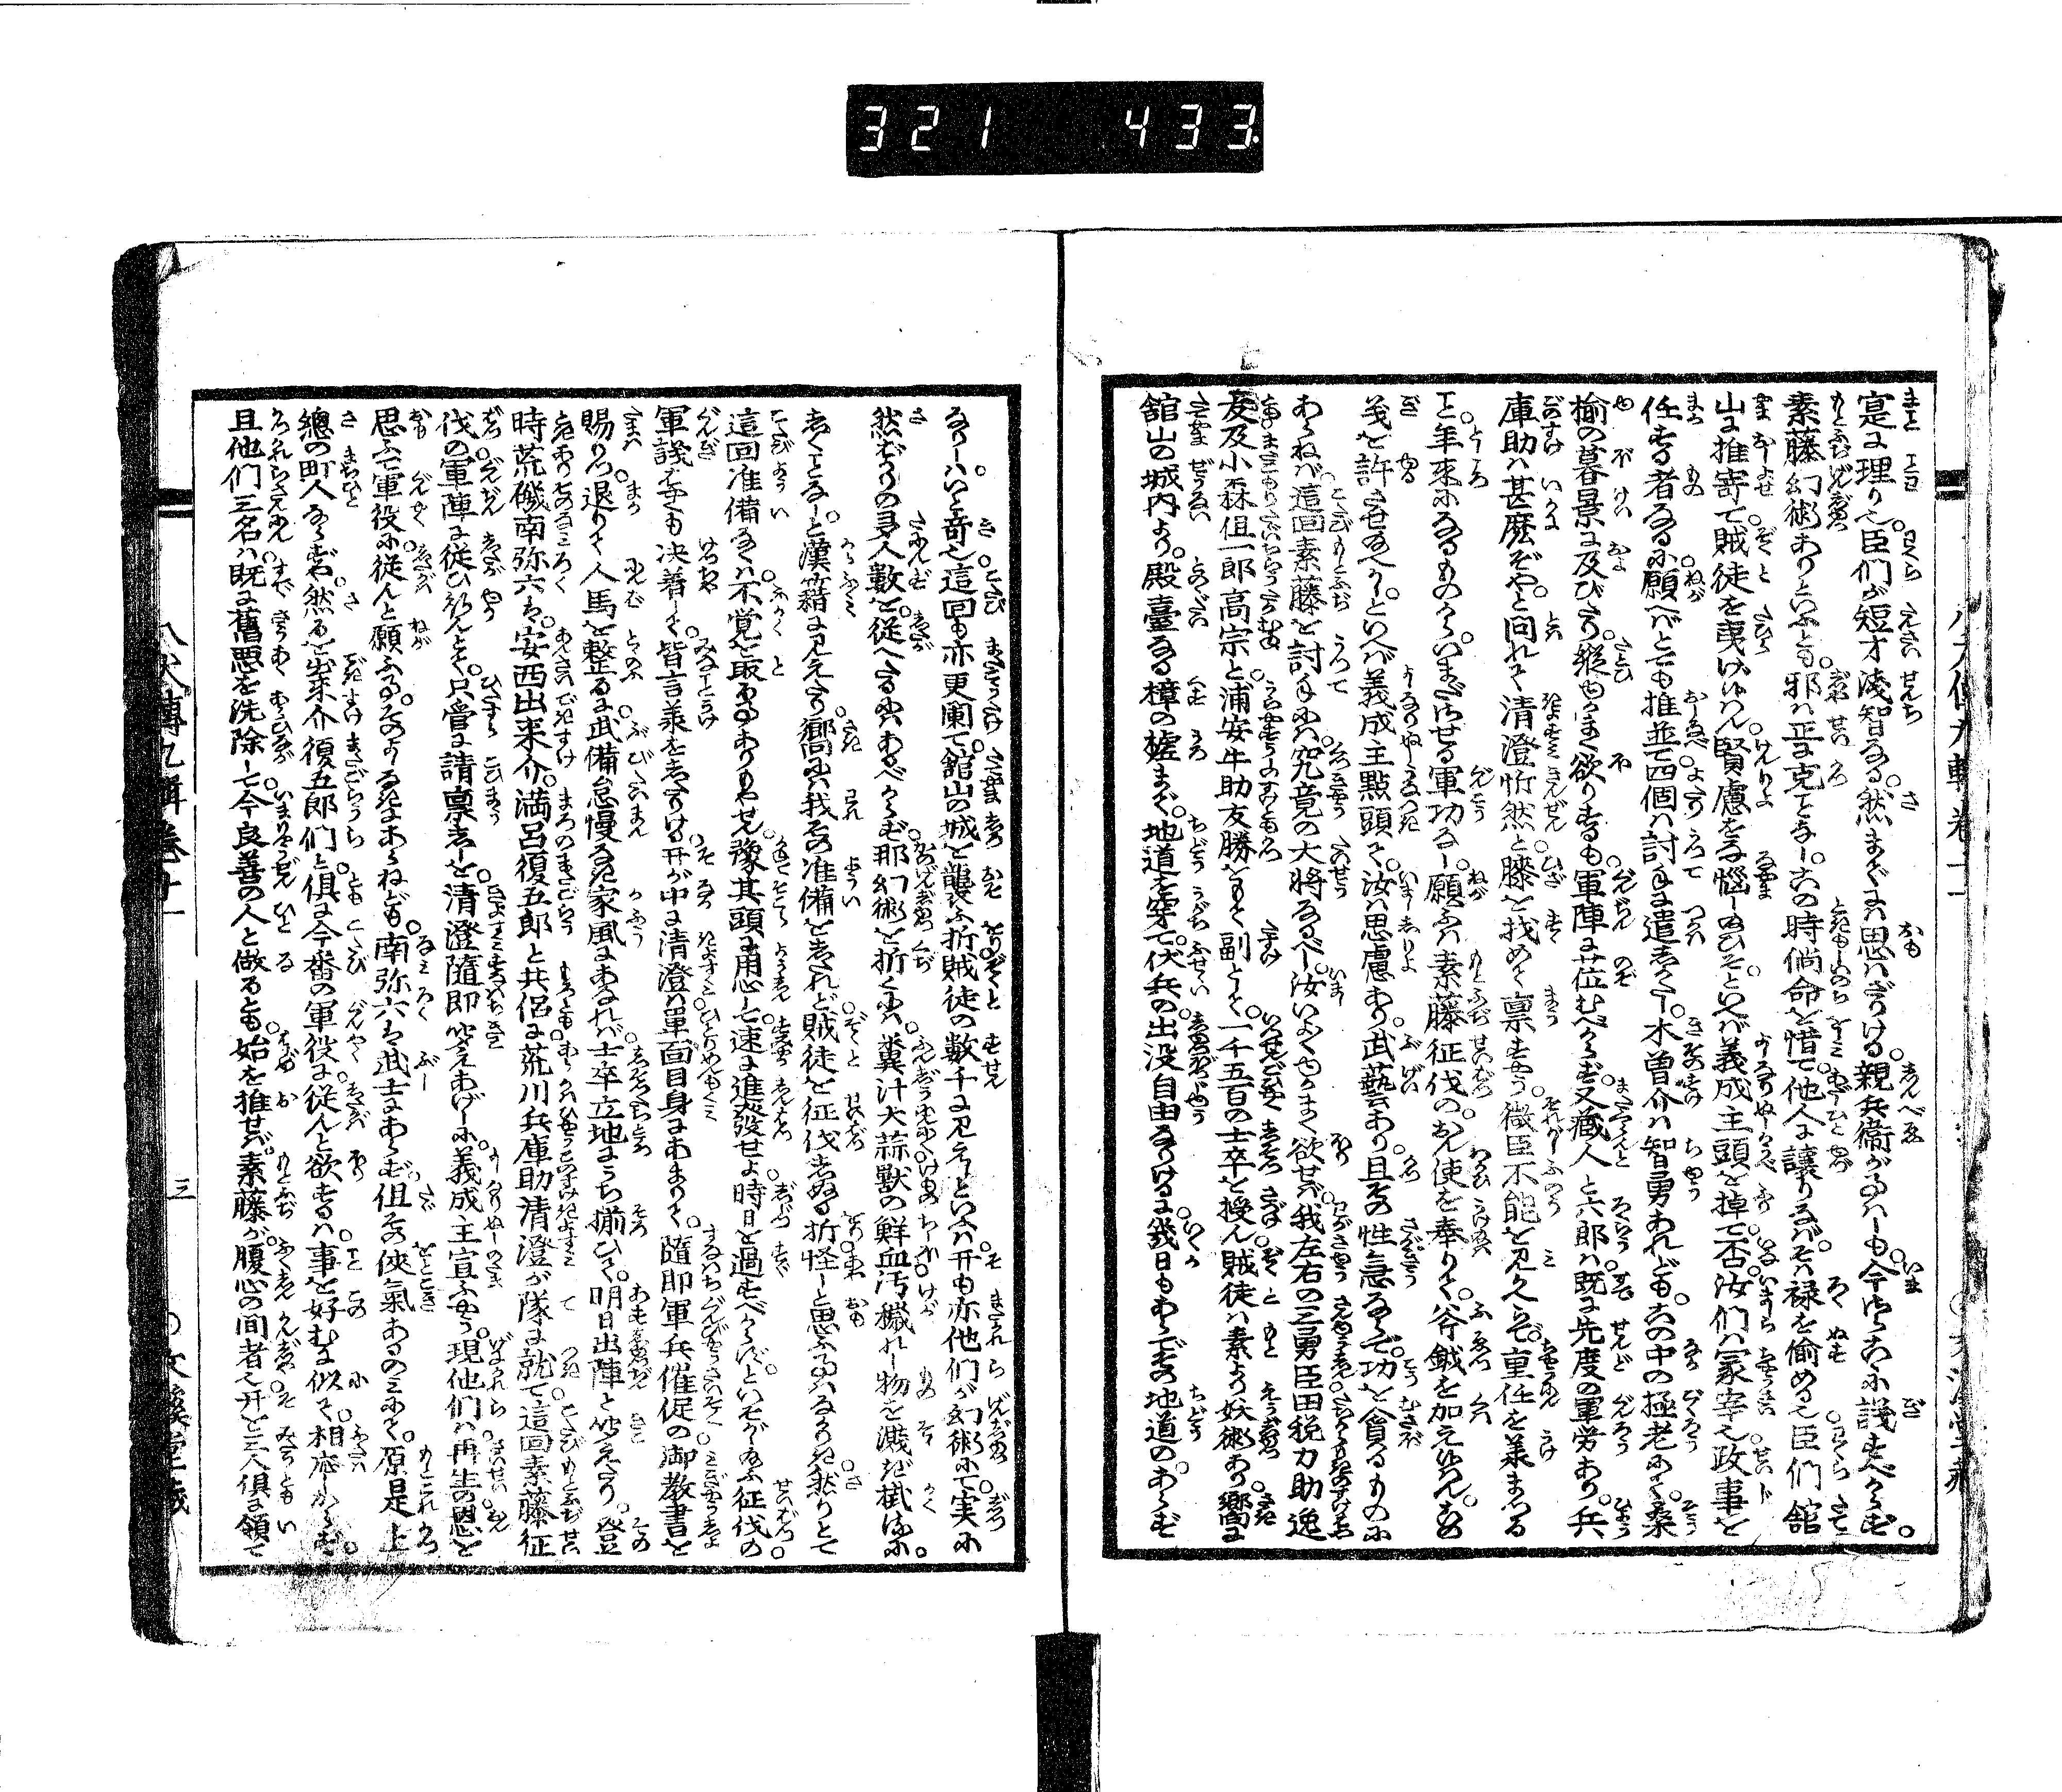 321 433
寔に理り也。臣們が短才淺智なる。然までは思はざりける。親兵衞がなしゝも。今さらこゝに議すべからず。
素藤幻術ありといふとも。邪は正に克ことなし。この時倘命を惜て。他人に讓りなば。そは禄を偸める也。臣們館
山に推寄て。賊徒を夷げはん。賢慮をな惱しゐひそといへば義成主頭を掉て。否。汝們は冢宰也。政事を
任する者なるに。願へばとても推並て。四個は討手に遣しがたし。木曽介は智勇あれども。この中の極老にて。桑
楡の暮景に及びたり。縦やまく欲りするも。軍陣に莅むべからず。又藏人と六郎は。既に先度の軍労あり。兵
庫助は甚麼ぞや。と問れて清澄忻然と。膝を找めて稟すやう。微臣不能を見かへらず。重任を羨まつる
こと。年來になるものから。いまださせる軍功なし。願ふは素藤征伐の。おん使を奉りて。斧鉞を加えはん。この
義を許させ給へかし。といへば義成主點頭て。汝は思慮あり。武藝あり。且その性急ならで。功を貪るものに
あらねば。這回素藤を討手には。究竟の大將なるべし。汝いよくやらまく欲せば。我左右の三勇臣。田税力助逸
友及小森但一郎高宗と。浦安牛助友勝をもて副とし。一千五百の士卒を授ん。賊徒は素より妖術あり。嚮に
舘山の城内より。殿臺なる樟の虚まで。地道を穿て。伏兵の。出没自由なりけるに。幾日もあらで。その地道のあらず
なりしは。いと奇也。這回も亦更闌て。舘山の城を襲ふ折。賊徒の数千に見えしといふは。开も亦他們が幻術にて。実に
然ばかりの。多人数を。從へたるにはあるべからず。那幻術を折くには。糞汁大蒜獸の鮮血。汚穢れし物を濺ぎ掛るに。
しくことなしと。漢籍に見えたり。嚮には我その准備をしたれど。賊徒を征伐しぬる折。怪しと思ふことはなかりき。然りとて
這回准備なくは。不覚を取ることありもやせん。豫其頭に用心して。速に進發せよ。時日を過すべからず。といそがし給ふ征伐の。
軍議をさも決着して。皆言羨をしたりける。开が中に清澄は。單面目身にあまりて。隨即軍兵催促の。御教書を
賜りつ。退りて人馬を整るに。武備怠慢なき家風にあなれば。士卒立地にうち揃ひて。明日出陣と聞えたり。登
時荒磯南弥六は。安西出来介。満呂復五郎と共侶に。荒川兵庫助清澄が隊に就て。這回素藤征
伐の。軍陣に從ひなんとて。只管に請稟ししを。清澄隨即聞えあげしに。義成主宣ふやう。現他們は再生の恩を
思ふて。軍役に從んと願ふなるその よ なきにあらねども。南弥六は。武士にあらず。但その俠氣あるのみにて。原是上
總の町人ならずや。然るを出来介復五郎們と。倶に今番の軍役に。從んと欲するは。事を好むに似て。相應しからず。
且他們三名は。既に舊悪を洗除して。今良善の人と做るとも。始を推せば。素藤が。腹心の間者也。开を三人倶に領て
八犬傳九輯卷廿一
三
○文溪堂藏